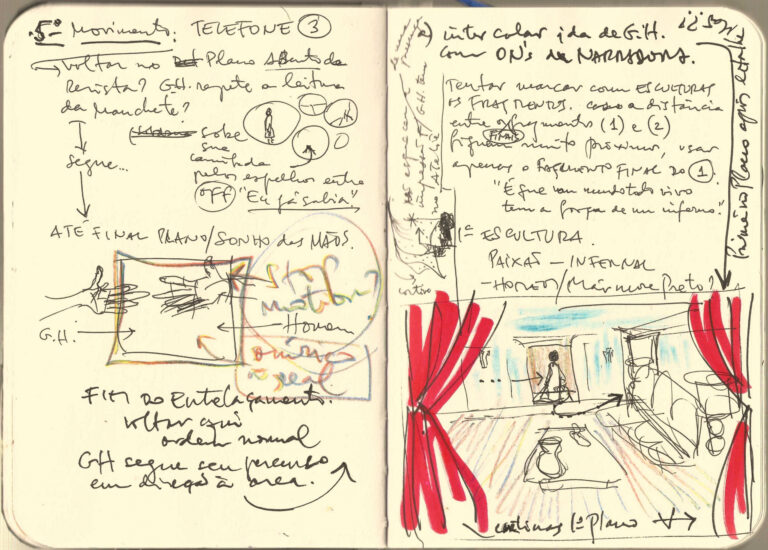 5º Movimento. TELEFONE 3
→ Voltar no Plano ABerto da
Revista? G.H. repete a leitura
da Manchete?
sobre
sua
caminhada
segue...
pelos espelhos entre
OFF "Eu já sabia"
ATÉ FINAL PLANO/SONHO das MÃOS.
STOP
Motion?
G.H. → ← Homem
real
FIM do Entrelaçamento.
Voltar aqui
ordem normal
GH segue seu percurso
em direção à área.
intercalar ida de G.H.
com ON's da NARRADORA.
Tentar marcar com ESCULTURAS
os FRAGMENTOS. como a distância
entre os fragmentos (1) e (2)
FINAIS
ficaram muito próximos, usar
apenas o FRAGMENTO FINAL do 1.
"É que um mundo todo vivo
tem a força de um inferno."
no Ateliê
1ª ESCULTURA.
PAIXÃO - INFERNAL
- HOMEM/Mármore Preto?
Primeiro Plano após detalhe
cortinas 1º Plano